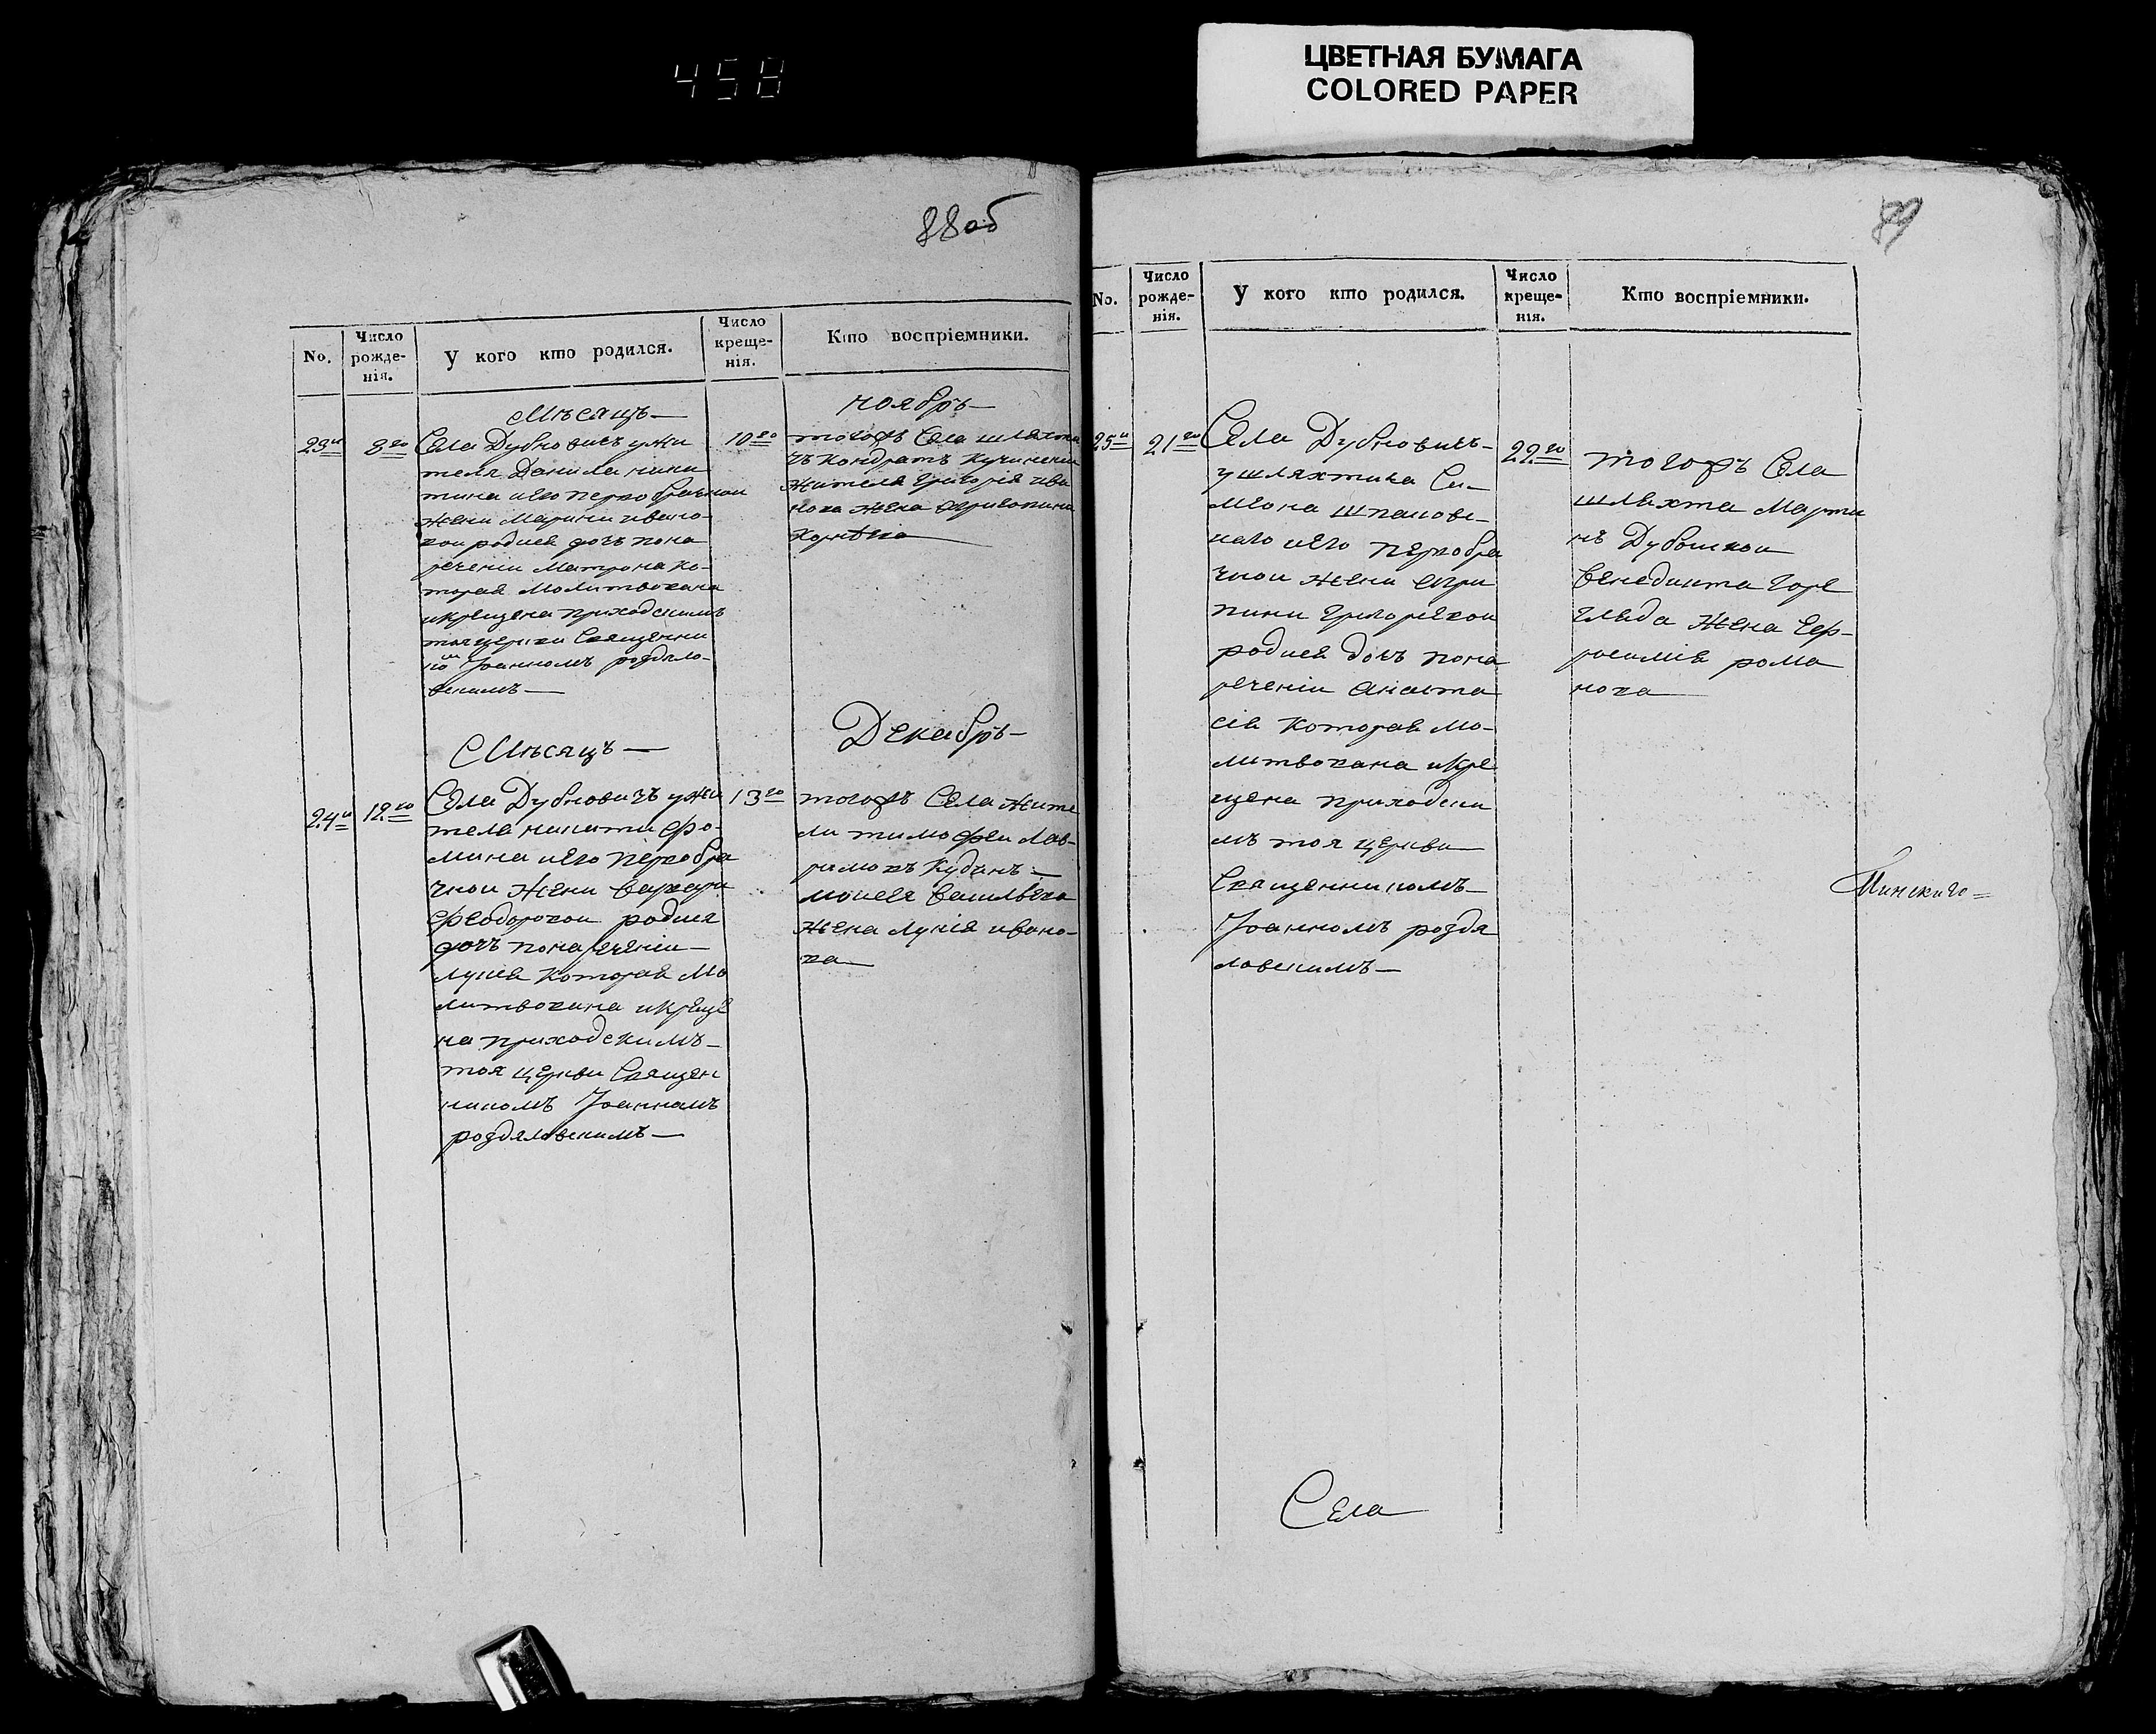 458
ЦВЕТНАЯ БУМАГА
COLORED PAPER
88об
No.
Число рожде-нія.
У кого кто родился.
Число креще-нія.
Кто воспріемники.
Мѣсяцъ
ноябръ
23и
8го
10го
Села Дубновичъ ужи
теля Данила ники
тина иего первобрачнои
жени Марини ивано-
вои родися дочъ пона
речении Матрона ко-
торая Молитвована
икрещена приходскимъ
тоя церкви Священни
Іоанномъ роздяло-
вскимъ
тогожъ Села шляхти
чъ Кондратъ
жителя Григорія ива
нова жена
Мѣсяцъ
Декабръ
24и
12го
13го
Села Дубновичъ ужи
теля никити фо-
мина иего первобра
чнои жени варвари
феодоровои родися
дочъ понаречении
лукия Которая Мо
литвована икреще
на приходскимъ
тоя церкви Священ
никомъ Іоанномъ
роздяловскимъ
тогожъ Села жите
ли тимофеи Лав-
риновъ Кудинъ
моисея василева
жена лукія ивано-
ва
89
No.
Число рожде-нія.
У кого кто родился.
Число креще-нія.
Кто воспріемники.
25и
21го
22го
Села Дубновичъ
ушляхтича Си-
меона шпаков-
скаго иего первобра
чнои жени Агри
пини Григориевои
родися дочъ пона
речении Анаста
сія Которая мо-
литвована икре
щена приходски
мъ тоя церкви
Священникомъ
Іоанномъ роздя
ловскимъ
тогожъ Села
шляхта Марти
нъ Дубоискои
Венедикта
жена Еф-
росимия рома
нова
Пинскаго
Села